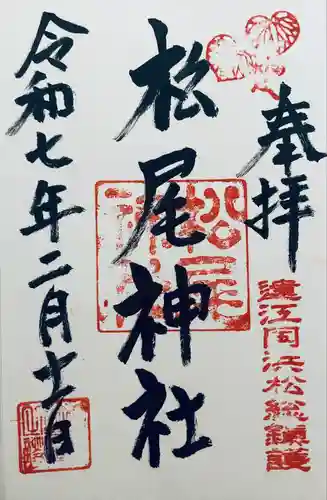 奉拝
遠江国浜松総鎮護
松尾神社
松尾神社
令和七年二月十一日